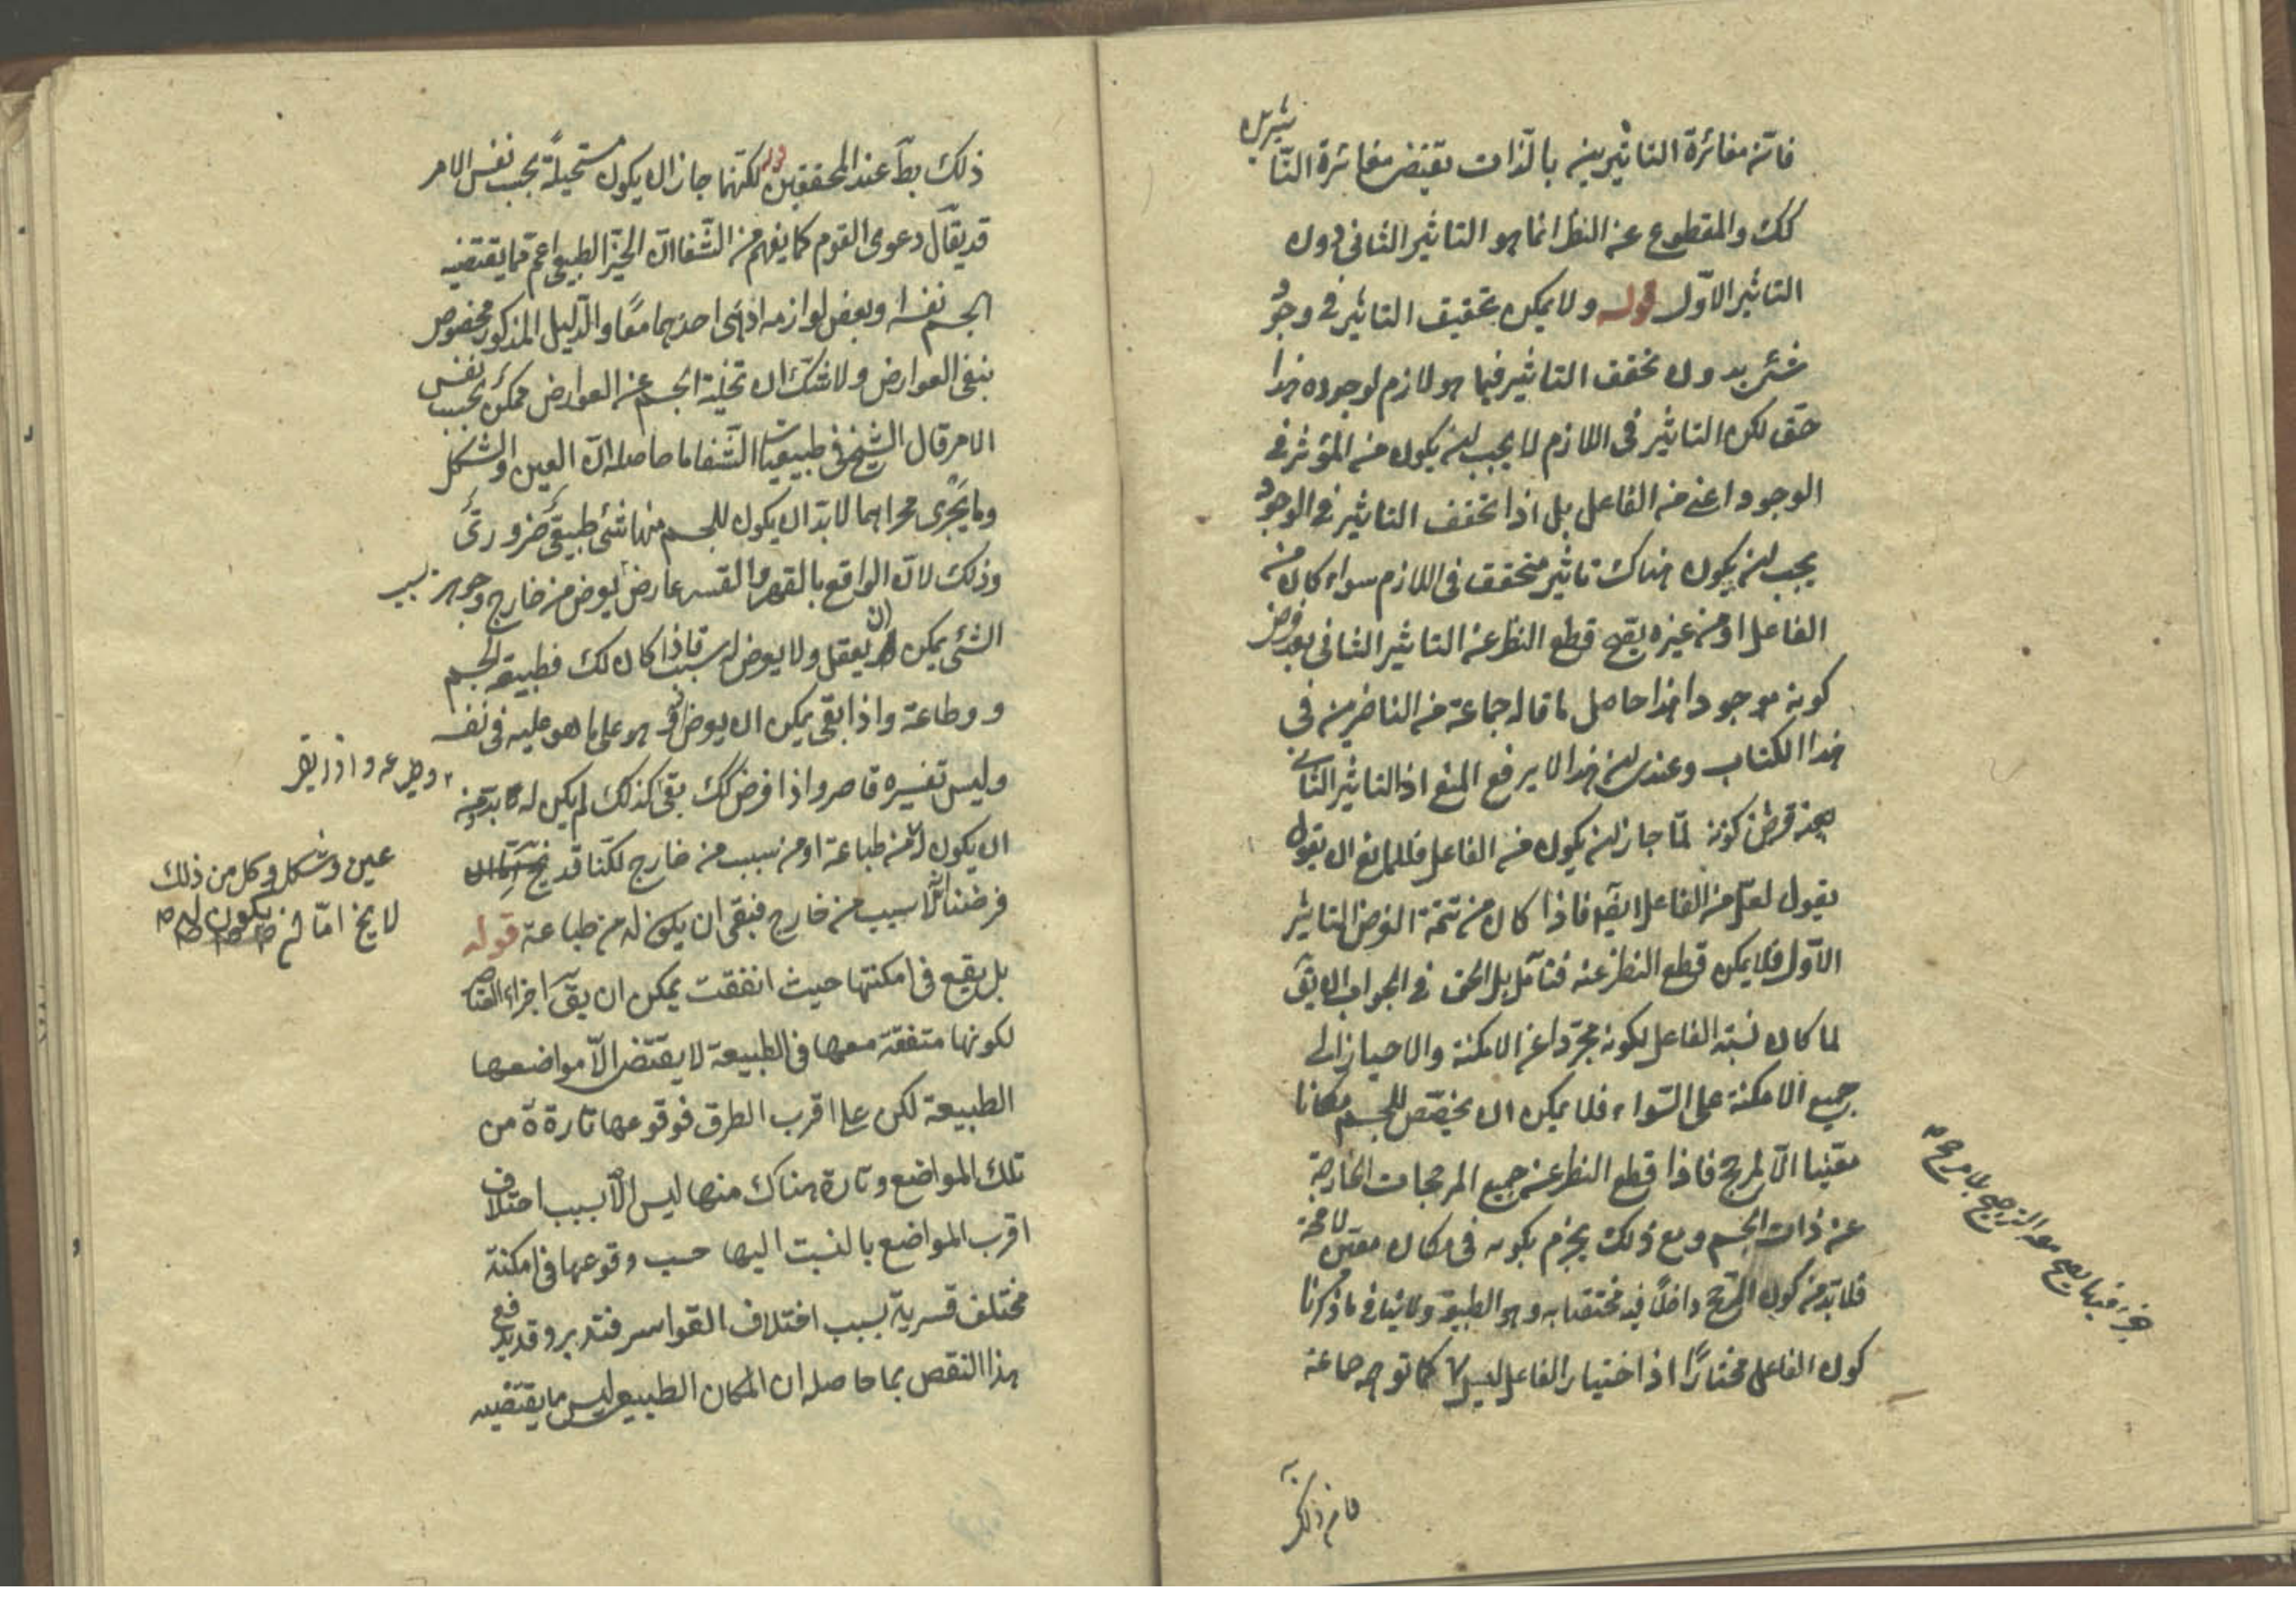 فان مغائرة التاثيرين بالذات تقتضى مغائرة التا
ثيرين
كك والمقطوع عنه النظر انما هو التاثير الثانى دون
التاثير الاوّل قوله ولا يمكن تحقيق التاثير فى وجود
شئ بدون تحقق التاثير فيما هو لازم لوجوده هذا
حق لكن التاثير فى اللازم لا يجب ان يكون من المؤثر فى
الوجود اعنى من الفاعل بل اذا تحقق التاثير فى الوجود
يجب ان يكون هناك تاثير متحقق فى اللازم سواء كان من
الفاعل او من غيره يقع قطع النظر عن التاثير الثانى بعد فرض
كونه موجودا هذا حاصل ما قاله جماعة من الناظرين فى
هذا الكتاب وعندى ان هذا لا يرفع المنع اذ التاثير الثانى
كونه لمّا جاز ان يكون من الفاعل فللمانع ان يقول
يقول لعل من الفاعل ايضا فاذا كان من تتمة الفرض التاثير
الاوّل فلا يمكن قطع النظر عنه فتامل بل الحق فى الجواب ان يق
لما كان نسبة الفاعل لكونه مجرّدا عن الامكنة والاحياز الى
جميع الامكنة على السّواء فلا يمكن ان يخصّص للجسم مكانا
معينا الّا لمرجح فاذا قطع النظر عن جميع المرجحات الخارجة
عن ذات الجسم ومع ذلك يجزم بكونه فى مكان معيّن لا محة
فلا بد من كون المرجّح داخلًا فيه مختصا به وهو الطبيعة ولا ينافى ما ذكرنا
كون الفاعل مختارًا اذ اختيار الفاعل ليس كما توهمه جماعة
فان ذلك
ذلك بط عند المحققين لكنّها جاز ان يكون مستحيلةً بحسب نفس الامر
قد يقال دعوى القوم كما يفهم من الشّفا ان الحيّز الطبيعى اعم مما يقتضيه
الجسم نفسه او بعض لوازمه او احدهما معًا والدّليل المذكور مخصوص
بنفى العوارض ولا شكّ ان تخلية الجسم عن العوارض ممكنٌ بحسب نفس
الامر قال الشيخ فى طبيعيات الشّفا ما حاصله انّ العين والشكل
وما يجرى مجراهما لا بدّ ان يكون للجسم منها شئ طبيعىّ ضرورىّ
وذلك لانّ الواقع بالقهر والقسر عارض يعرض من خارج وجوهر بسبب
الشئ يمكن ان يعقل ولا يعرض له سبب فاذا كان كك فطبيعة الجسم
وطاعة واذا بقى يمكن ان يعرض وهو على ما هو عليه فى نفسه
وليس تفسيره قاصر واذا فرض كك بقى كذلك لم يكن له بد من
وطباعه واذا بقى
عين وشكل وكل من ذلك
لا يخ امّا
ان يكون له من طباعة او من سبب من خارج لكنّا قد
فرضنا لا سبب من خارج فبقى ان يكون له من طباعة قوله
بل يقع فى امكنتها حيث اتفقت يمكن ان يق اجزاء العناصر
لكونها متفقة معها فى الطبيعة لا يقتضى الّا مواضعها
الطبيعة لكن على اقرب الطرق فوقوعها تارة من
تلك المواضع وتارة هناك منها ليس الّا بسبب اختلاف
اقرب المواضع بالنسبت اليها حسب وقوعها فى امكنة
مختلف قسرية بسبب اختلاف القواسر فتدبر وقد يدفع
هذا النقص بما حاصله ان المكان الطبيعى ليس ما يقتضيه